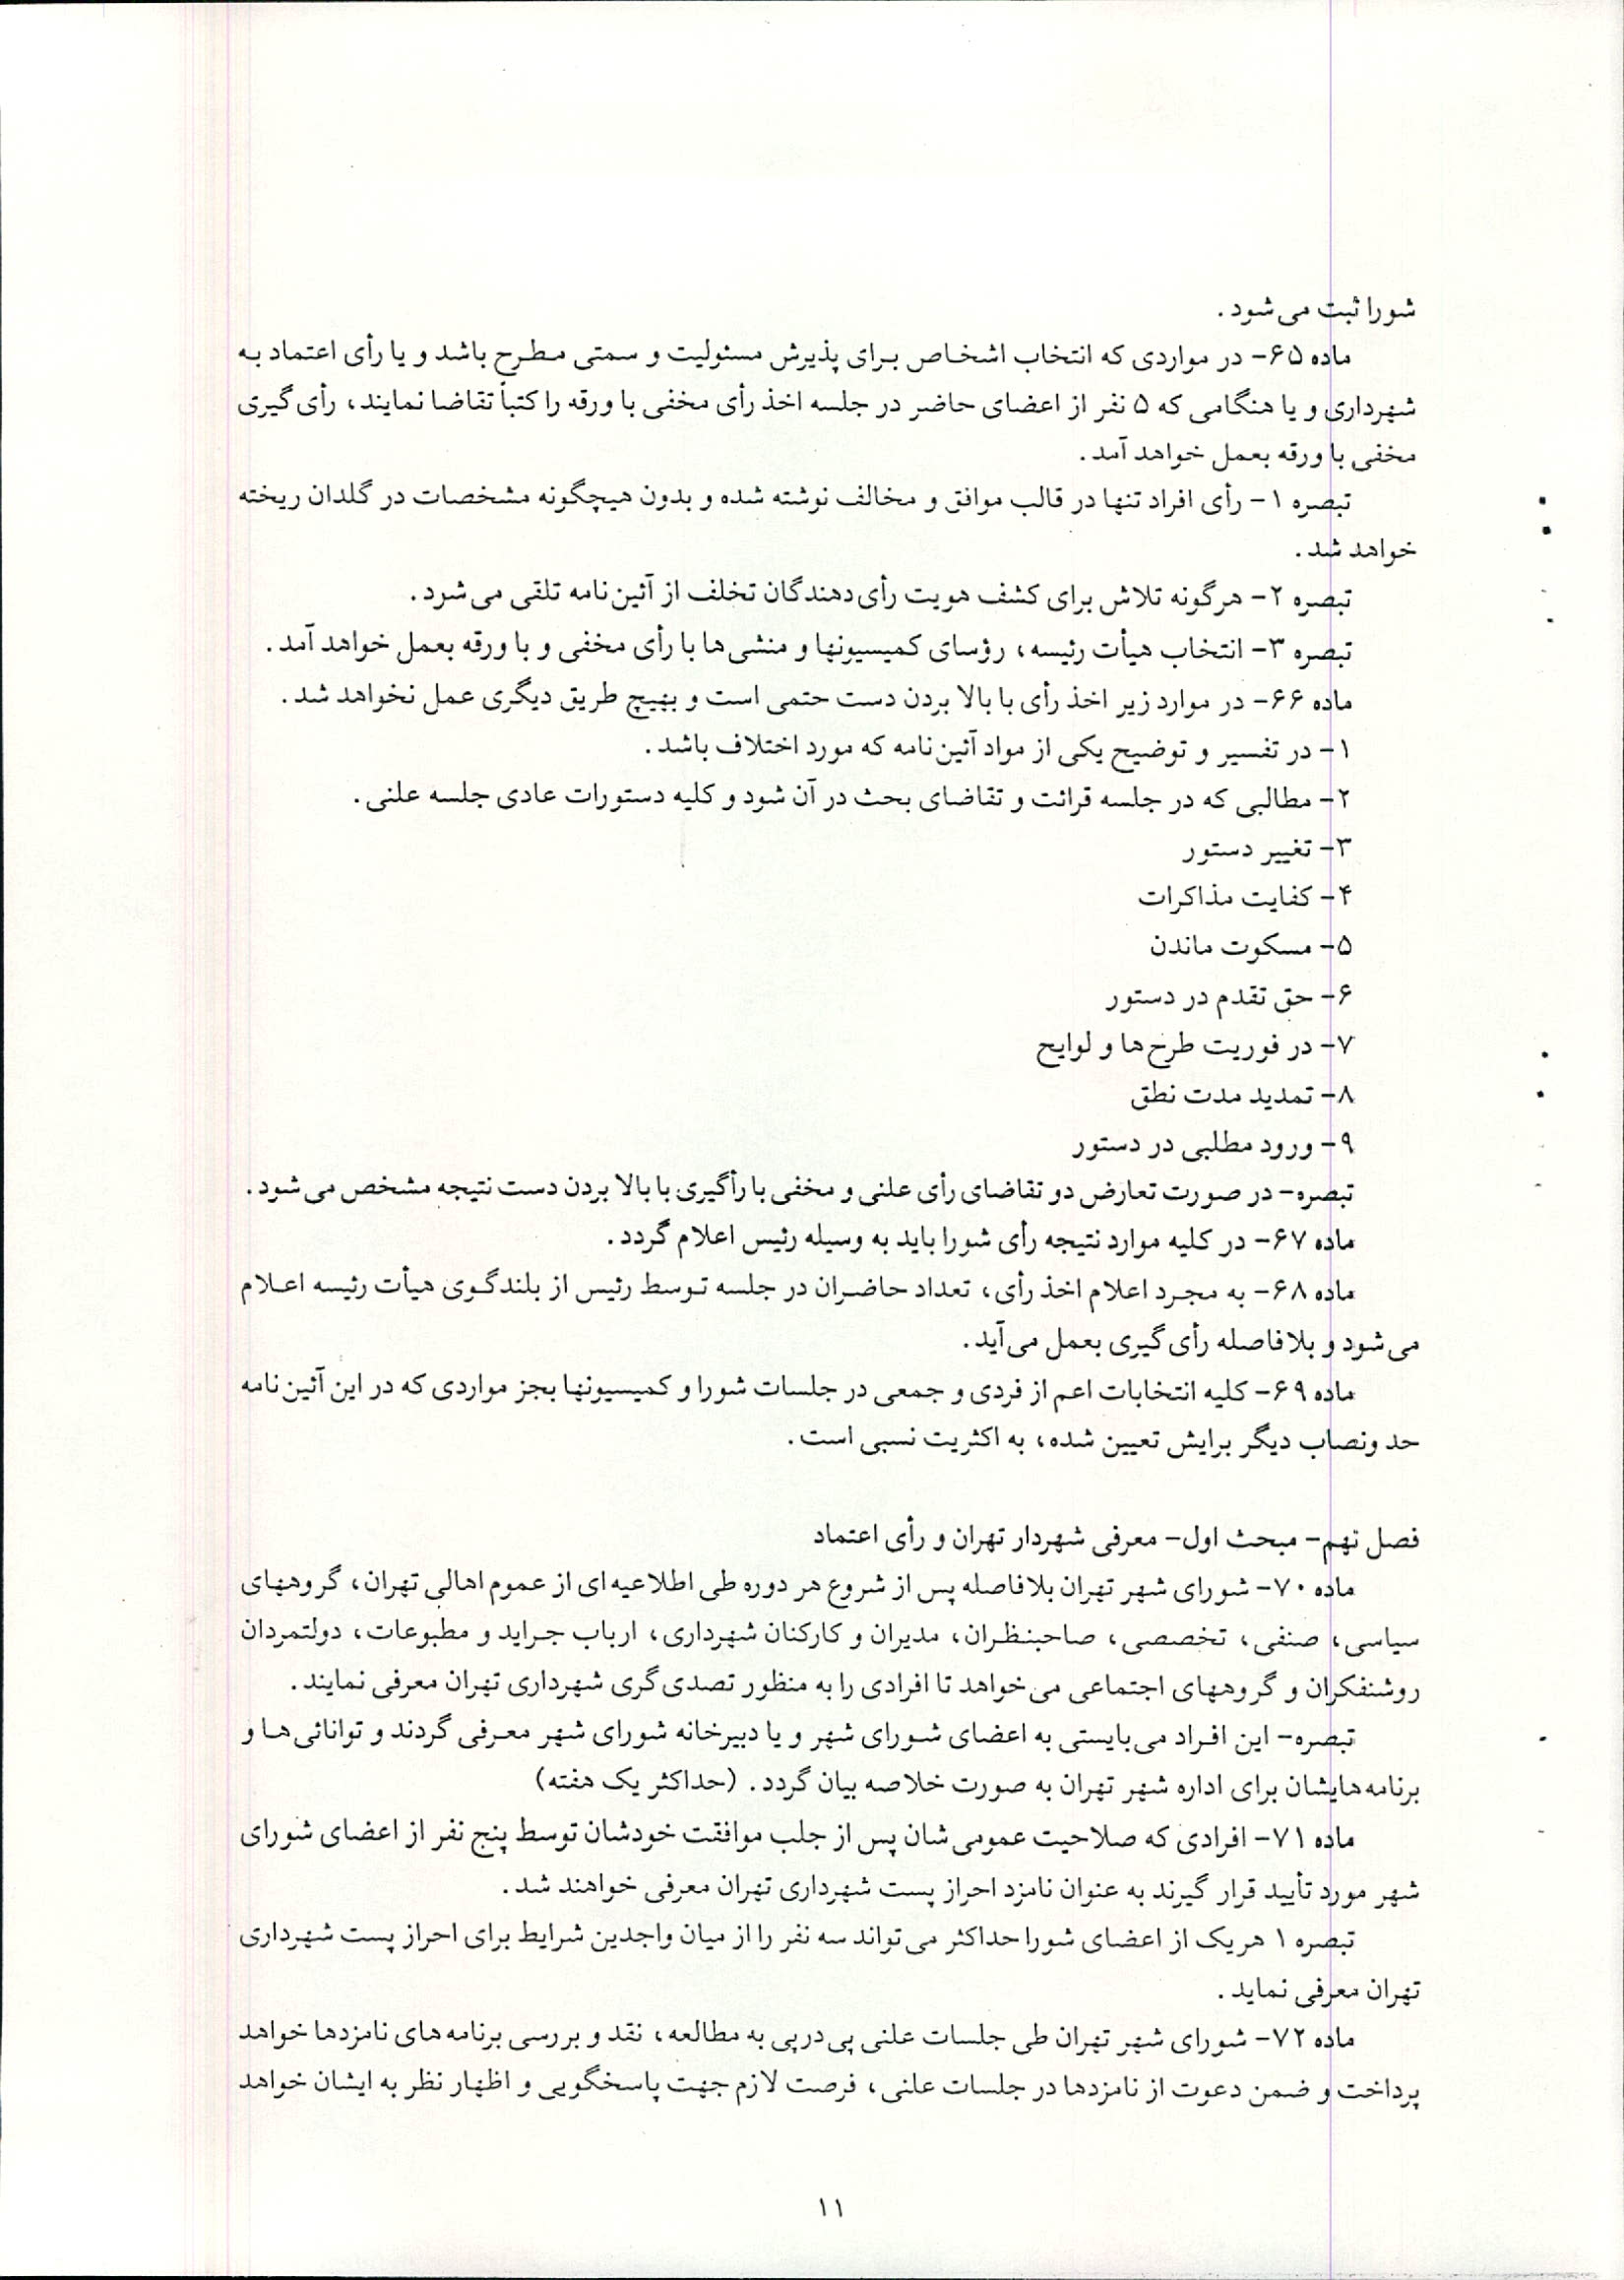 شورا ثبت می‌شود.
ماده ۶۵- در مواردی که انتخاب اشخاص برای پذیرش مسئولیت و سمتی مطرح باشد و یا رأی اعتماد به
شهرداری و یا هنگامی که ۵ نفر از اعضای حاضر در جلسه اخذ رأی مخفی با ورقه را کتباً تقاضا نمایند، رأی گیری
مخفی با ورقه بعمل خواهد آمد.
تبصره ۱- رأی افراد تنها در قالب موافق و مخالف نوشته شده و بدون هیچگونه مشخصات در گلدان ریخته
خواهد شد.
تبصره ۲- هرگونه تلاش برای کشف هویت رأی‌دهندگان تخلف از آئین‌نامه تلقی می‌شرد.
تبصره ۳- انتخاب هیأت رئیسه، رؤسای کمیسیونها و منشی‌ها با رأی مخفی و با ورقه بعمل خواهد آمد.
ماده ۶۶- در موارد زیر اخذ رأی با بالا بردن دست حتمی است و بهیچ طریق دیگری عمل نخواهد شد.
۱- در تفسیر و توضیح یکی از مواد آئین‌نامه که مورد اختلاف باشد.
۲- مطالبی که در جلسه قرائت و تقاضای بحث در آن شود و کلیه دستورات عادی جلسه علنی.
۳- تغییر دستور
۴- کفایت مذاکرات
۵- مسکوت ماندن
۶- حق تقدم در دستور
۷- در فوریت طرح‌ها و لوایح
۸- تمدید مدت نطق
۹- ورود مطلبی در دستور
تبصره- در صورت تعارض دو تقاضای رأی علنی و مخفی با رأگیری با بالا بردن دست نتیجه مشخص می‌شود.
ماده ۶۷- در کلیه موارد نتیجه رأی شورا باید به وسیله رئیس اعلام گردد.
ماده ۶۸- به مجرد اعلام اخذ رأی، تعداد حاضران در جلسه توسط رئیس از بلندگوی هیأت رئیسه اعلام
می‌شود و بلافاصله رأی گیری بعمل می‌آید.
ماده ۶۹- کلیه انتخابات اعم از فردی و جمعی در جلسات شورا و کمیسیونها بجز مواردی که در این آئین‌نامه
حد ونصاب دیگر برایش تعیین شده، به اکثریت نسبی است.
فصل نهم- مبحث اول- معرفی شهردار تهران و رأی اعتماد
ماده ۷۰- شورای شهر تهران بلافاصله پس از شروع هر دوره طی اطلاعیه‌ای از عموم اهالی تهران، گروههای
سیاسی، صنفی، تخصصی، صاحبنظران، مدیران و کارکنان شهرداری، ارباب جراید و مطبوعات، دولتمردان
روشنفکران و گروههای اجتماعی می‌خواهد تا افرادی را به منظور تصدی گری شهرداری تهران معرفی نمایند.
تبصره- این افراد می‌بایستی به اعضای شورای شهر و یا دبیرخانه شورای شهر معرفی گردند و توانائی‌ها و
برنامه‌هایشان برای اداره شهر تهران به صورت خلاصه بیان گردد. (حداکثر یک هفته)
ماده ۷۱- افرادی که صلاحیت عمومی‌شان پس از جلب موافقت خودشان توسط پنج نفر از اعضای شورای
شهر مورد تأیید قرار گیرند به عنوان نامزد احراز پست شهرداری تهران معرفی خواهند شد.
تبصره ۱ هریک از اعضای شورا حداکثر می‌تواند سه نفر را از میان واجدین شرایط برای احراز پست شهرداری
تهران معرفی نماید.
ماده ۷۲- شورای شهر تهران طی جلسات علنی پی‌درپی به مطالعه، نقد و بررسی برنامه‌های نامزدها خواهد
پرداخت و ضمن دعوت از نامزدها در جلسات علنی، فرصت لازم جهت پاسخگویی و اظهار نظر به ایشان خواهد
۱۱